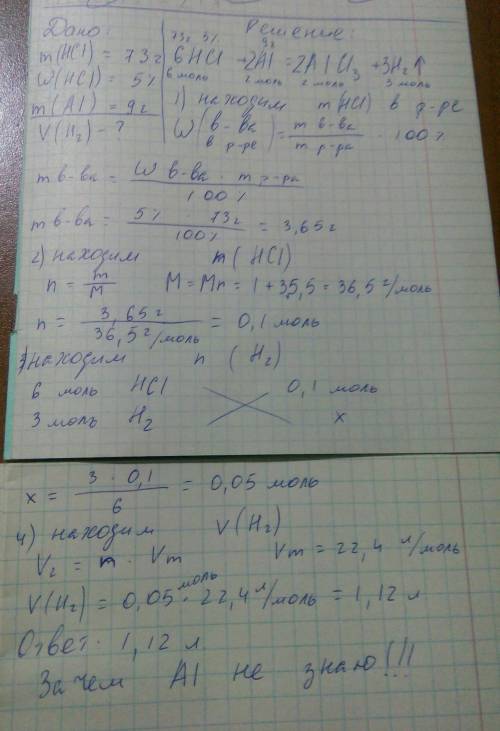 Дано: Решение:
m(HCl) = 73г
73г 5% 9г
6HCl + 2Al = 2AlCl₃ + 3H₂↑
W(HCl) = 5%
6 моль 2 моль 2 моль 3 моль
m(Al) = 9г
1) находим m(HCl) в р-ре
V(H₂) - ?
W(в-ва в р-ре) = m в-ва / m р-ра · 100%
m в-ва = W в-ва · m р-ра / 100%
m в-ва = 5% · 73г / 100% = 3,65г
2) находим n(HCl)
n = m/M M = Mr = 1 + 35,5 = 36,5 г/моль
n = 3,65г / 36,5 г/моль = 0,1 моль
3) находим n (H₂)
6 моль HCl 0,1 моль
3 моль H₂ x
x = 3 · 0,1 / 6 = 0,05 моль
4) находим V(H₂)
V₂ = n · Vm Vm = 22,4 л/моль
V(H₂) = 0,05 моль · 22,4 л/моль = 1,12 л
Ответ · 1,12 л
Зачем Al не знаю!!!